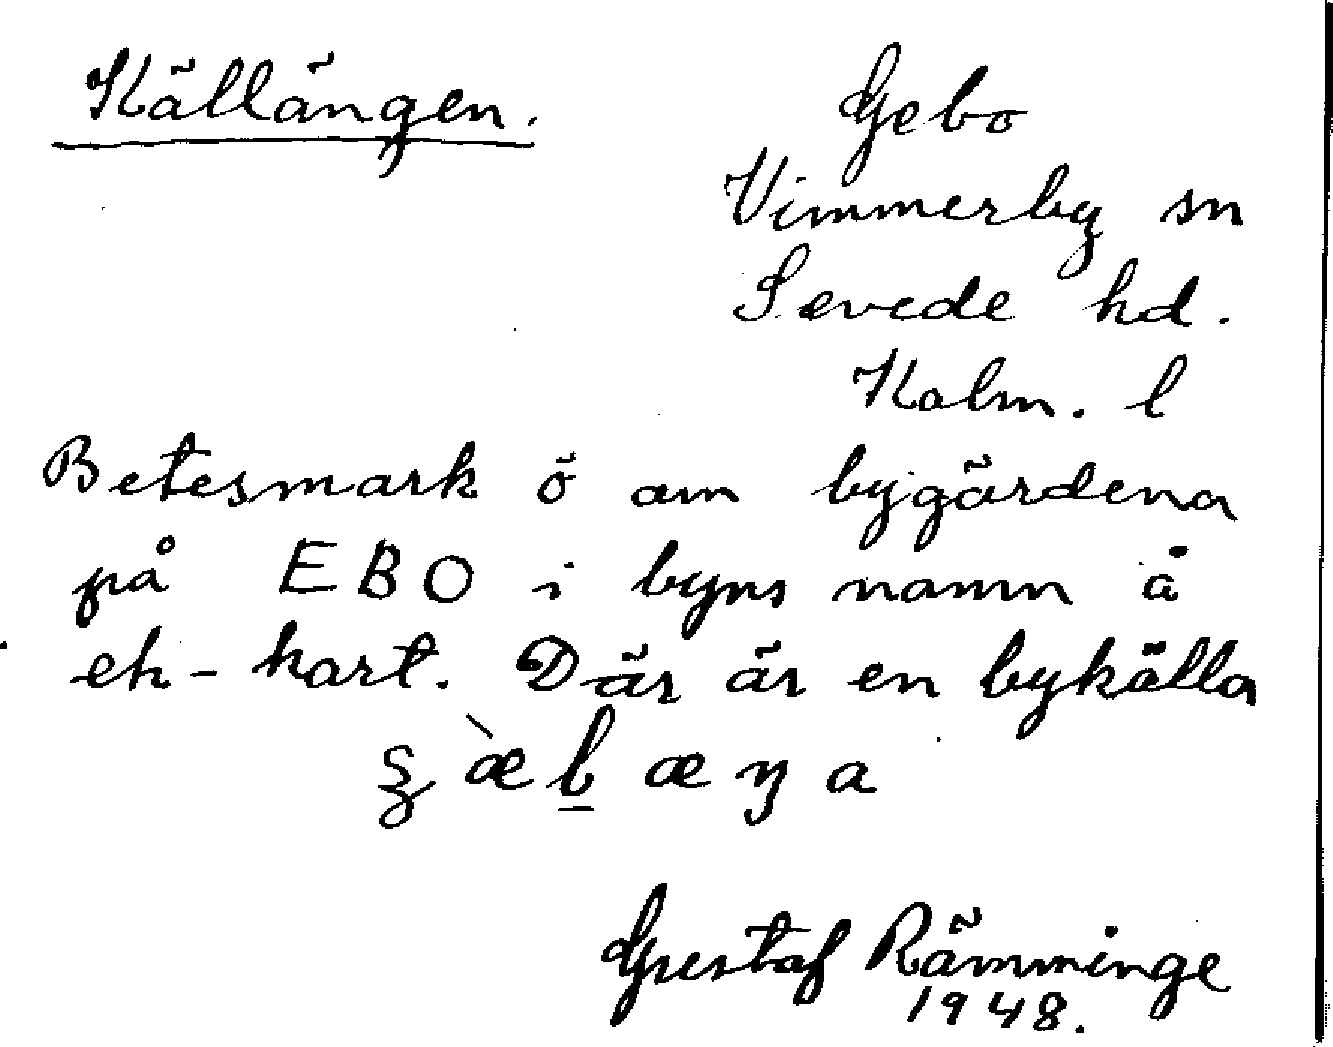 Källängen.
Gebo
Vimmerby sn
Sevede hd.
Kalm. l
Betesmark ö om bygärdena
på EBO i byns namn å
ek-kart. Där är en bykälla
Gustaf Rämminge
1948.